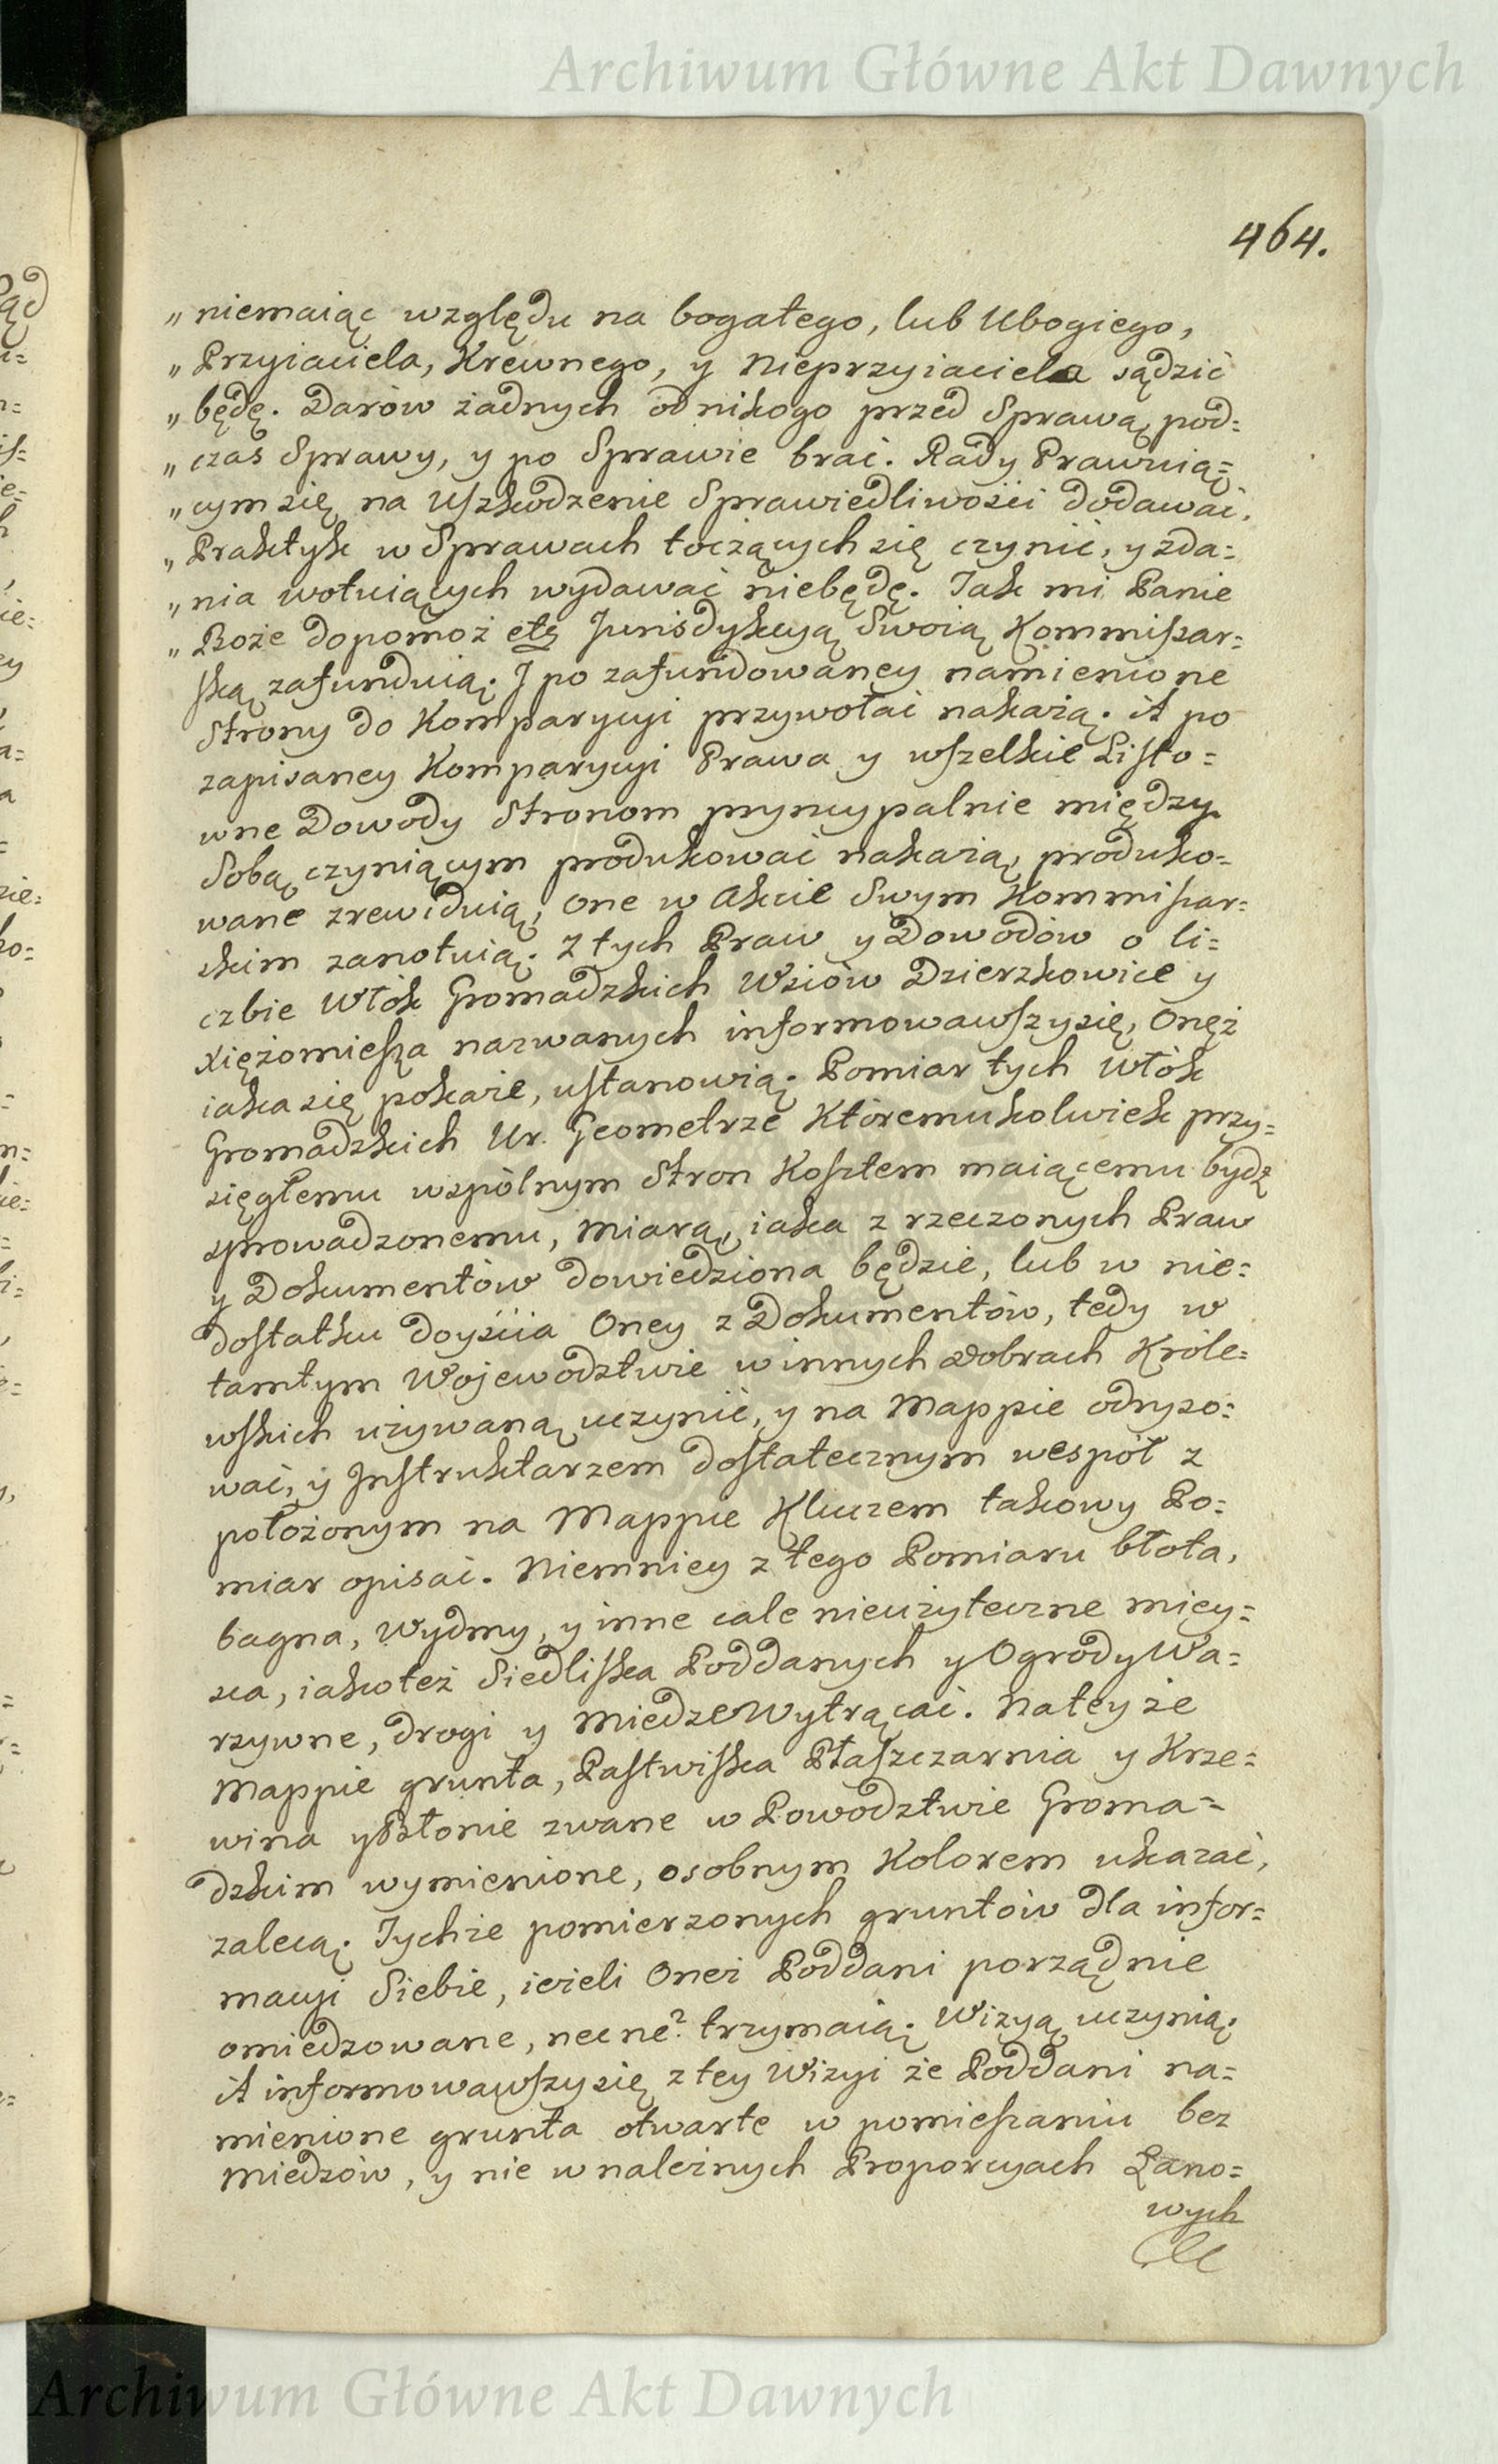 Archiwum Główne Akt Dawnych
464.
„ niemaiąc względu na bogatego, lub Ubogiego,
„ Przyiaciela, Krewnego, y Nieprzyiaciela sądzić
„ będę. Darów żadnych od nikogo przed Sprawą, pod=
„ czas Sprawy, y po Sprawie brać. Rady Prawuią=
„ cym się na Uszkodzenie Sprawiedliwości dodawać,
„ Praktyk w Sprawach toczących się czynić, y zda=
„ nia wotuiących wydawać niebędę. Tak mi Panie
„ Boże dopomoż etc Jurisdykcyą Swoią Kommissar=
ską zafunduią. J po zafundowaney namienione
Strony do Komparycyi przywołać nakażą. A po
zapisaney Komparycyi Prawa y wszelkie Listo=
wne Dowody Stronom pryncypalnie między
Sobą czyniącym produkować nakażą, produko=
wane zrewiduią, One w Akcie Swym Kommissar=
skim zanotuią. Z tych Praw y Dowodów o li=
czbie Włók Gromadzkich Wsiów Dzierzkowice y
Xiężomiesza nazwanych informowawszy się, Onęż
iaka się pokaże, ustanowią. Pomiar tych Włók
Gromadzkich Ur. Geometrze Któremukolwiek przy=
sięgłemu wspólnym Stron Kosztem maiącemu bydź
sprowadzonemu, Miarą, iaka z rzeczonych Praw
y Dokumentów dowiedziona będzie, lub w nie=
dostatku doyścia Oney z Dokumentów, tedy w
tamtym Wojewodztwie w innych Dobrach Króle=
wskich używaną uczynić, y na Mappie odryso=
wać, y Instruktarzem dostatecznym wespół z
położonym na Mappie Kluczem takowy Po=
miar opisać. Niemniey z tego Pomiaru błota,
bagna, Wydmy, y inne cale nieużyteczne miey=
sca, iakoteż Siedliska Poddanych y Ogrody Wa=
rzywne, drogi y Miedze Wytrącać. Na tey że
Mappie grunta, Pastwiska Ptaszczarnia y Krze=
wina y Błonie zwane w Powodztwie Groma=
dzkim wymienione, osobnym Kolorem ukazać,
zalecą. Tychże pomierzonych gruntów dla infor=
macyi Siebie, ieżeli Oneż Poddani porządnie
omiedzowane, necne? trzymaią. Wizyą uczynią.
A informowawszy się z tey Wizyi że Poddani na=
mienione grunta otwarte w pomieszaniu bez
Miedzów, y nie w należnych Proporcyach Łano=
wych
Archiwum Główne Akt Dawnych